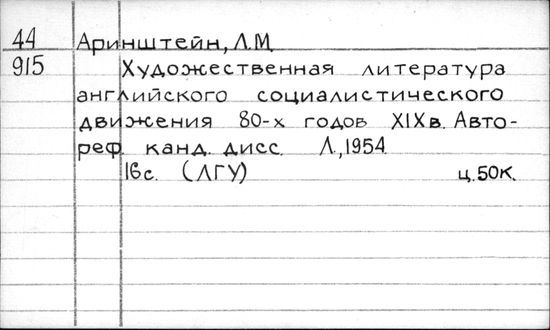 44 Аринштейн, Л.М.
915 Художественная литература
английского социалистического
движения 80-х годов XIXв. Авто-
реф. канд. дисс. Л., 1954.
16с. (ЛГУ) ц.50к.